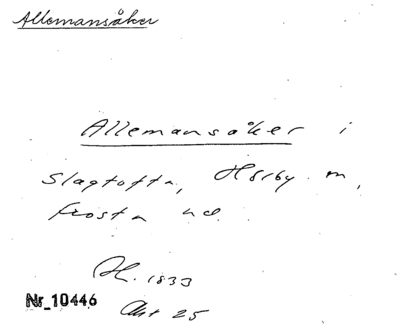 Allemansåker
Allemansåker i
Slagtofta, Hörby m,
frosta hd
H. 1833
Nr_10446
Akt 25